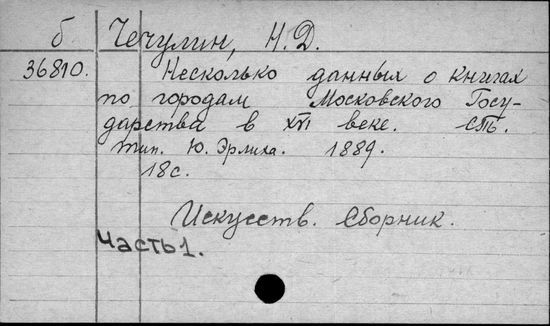 б Чечулин, Н.Д.
36810. Несколько данных о книгах
по городам Московского Госу-
дарства в XVI веке. СПб.
тип. Ю. Эрлиха. 1889.
18с.
Искусств. Сборник.
Часть 1.